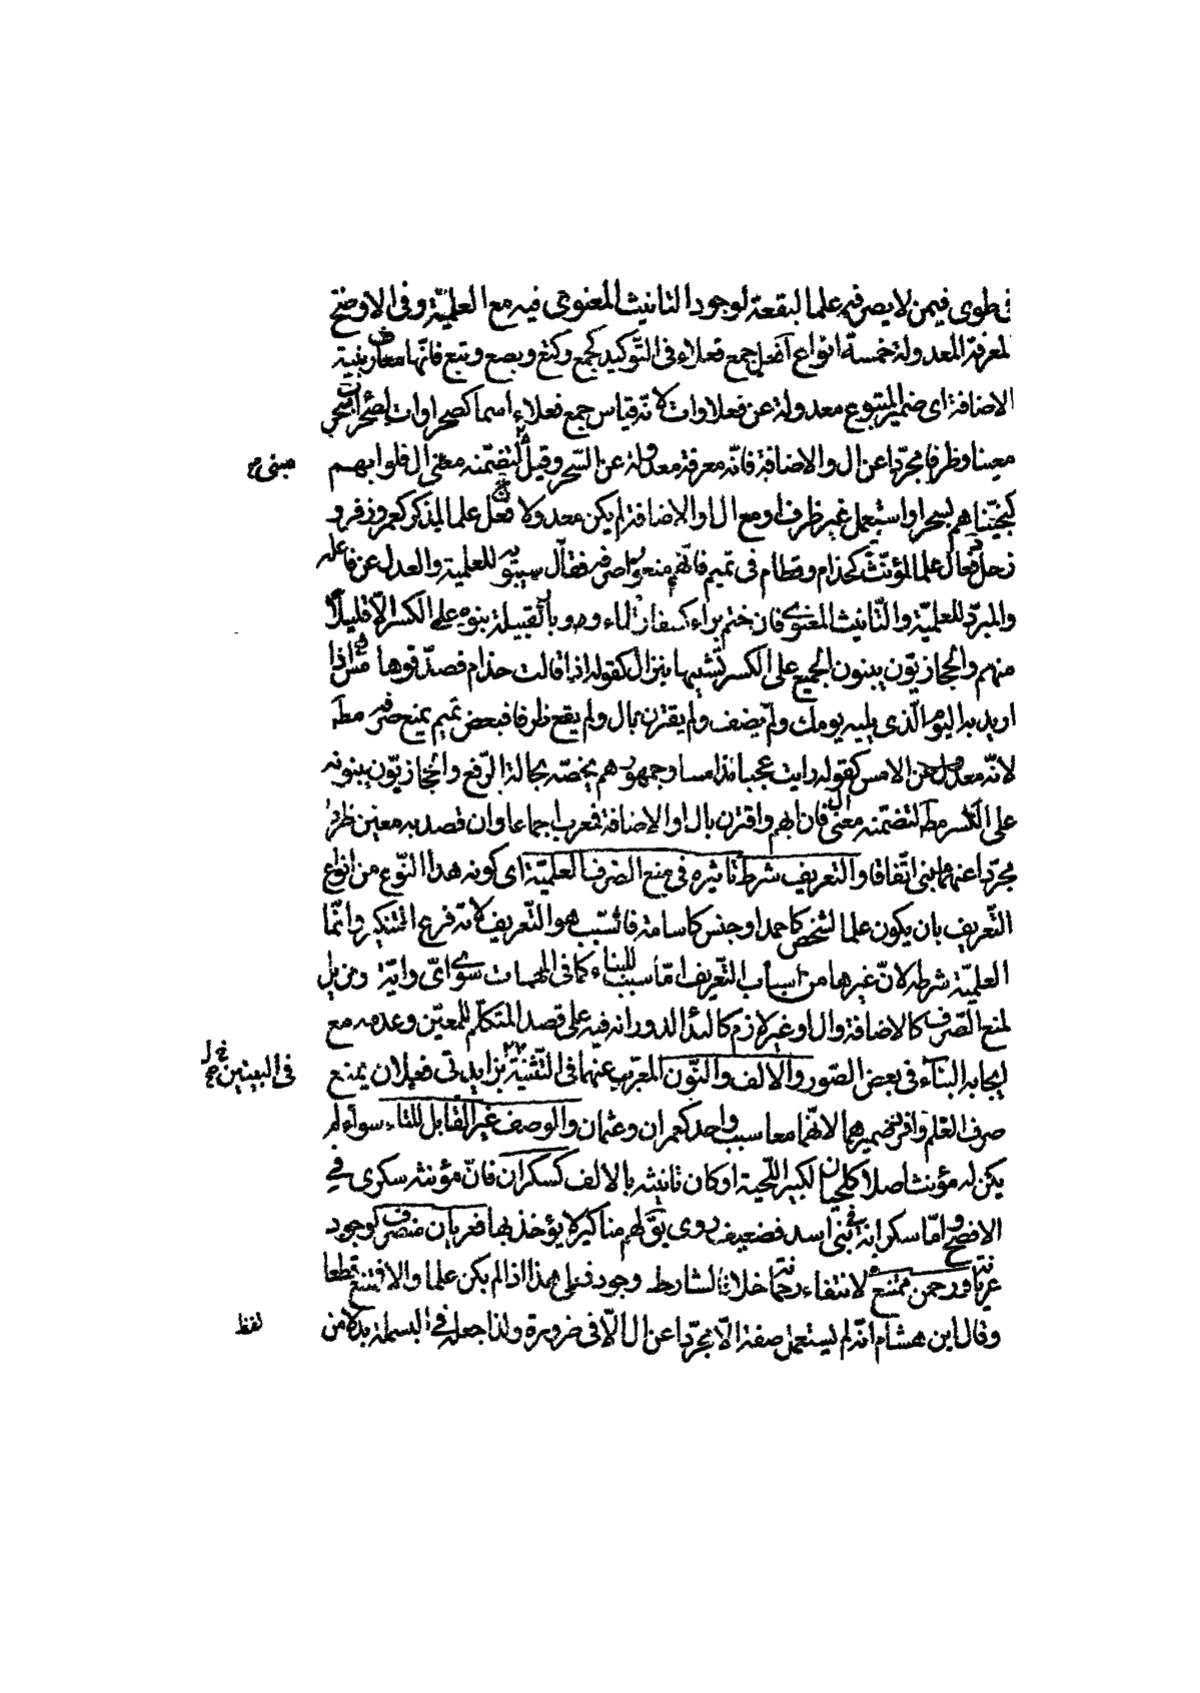 في طوى فيمن لا يصرفه علما لبقعة لوجود التانيث المعنوي فيه مع العلميّة وفي الاوضح
لمعرفة المعدولة خمسة انواع آ فعل جمع فعلاء في التّوكيد كجمع وكتع وبصع وبتع فانّها معارف بنية
الاضافة اى ضمير المتبوع معدولة عن فعلاوات لانّه قياس جمع فعلاء اسما كصحراوات لصحراء سحر
معينا وظرفا مجرّدا عن ال والاضافة فانّه معرفة معدولة عن السّحر وقيل لتضمّنه معنى ال فلو ابهم
مبنى ح
كنجّيناهم بسحر او استعمل غير ظرف او مع ال او الاضافة لم يكن معدولا فعل علما لمذكر كعمر وزفر و
زحل فعال علما لمؤنّث كحذام وقطام في تميم فانّهم منعوا صرفه فقال سيبويه للعلمية والعدل عن فاعلة
والمبرّد للعلميّة والتّانيث المعنوي فان ختم براء كسفار لماء ووبار لقبيلة بنوه على الكسر الّا قليلا
منهم والحجازيّون يبنون الجميع على الكسر تشبيها بنزال كقوله اذا قالت حذام فصدّقوها امس اذا
اريد به اليوم الّذى يليه يومك ولم يضف ولم يقترن بال ولم يقع ظرفا فبعض تميم يمنع صرفه مط
لانّه معدول عن الامس كقوله رايت عجبا مذ امسا وجمهورهم يخصّه بحالة الرّفع والحجازيّون يبنونه
على الكسر مط لتضمّنه معنى ال فان ابهم واقترن بال او الاضافة فمعرب اجماعا وان قصد به معين ظرفا
مجرّدا عنهما بنى اتّفاقا والتعريف شرط تاثيره في منع الصّرف العلميّة اى كونه هذا النّوع من انواع
التّعريف بان يكون علما لشخص كاحمد او جنس كاسامة فالسّبب هو التّعريف لانّه فرع التنكير وانّما
العلميّة شرطه لانّ غيرها من اسباب التّعريف امّا سبب للبناء كما في المبهمات سوى اىّ وايّة ومزيل
لمنع الصّرف كالاضافة وال او غير لازم كالندا لدورانه فيه على قصد المتكلّم للمعيّن وعدمه مع
ايجابه البناء في بعض الصّور والالف والنّون المعرّب عنهما في التّثنية بزايدتى فعلان يمنع
صرف العلم وافرد ضميرهما لانّهما معا سبب واحد كعمران وعثمان والوصف غير القابل للتّاء سواء لم
يكن له مؤنث اصلا كلحيان لكبير اللّحية او كان تانيثه بالالف كسكران فانّ مؤنثه سكرى في
الافصح وامّا سكرانة في بنى اسد فضعيف روى بق لهم مناكير لا يؤخذ بها فعريان منصرف لوجود
عريانة ورحمن ممتنع لانتفاء رحمانة خلافا لشارط وجود فعلى هذا اذا لم يكن علما والا فتمتنع قطعا
وقال ابن هشام انّه لم يستعمل صفة الّا مجرّدا عن ال الّا في ضرورة ولذا جعله في البسملة بدلا من
لفظ